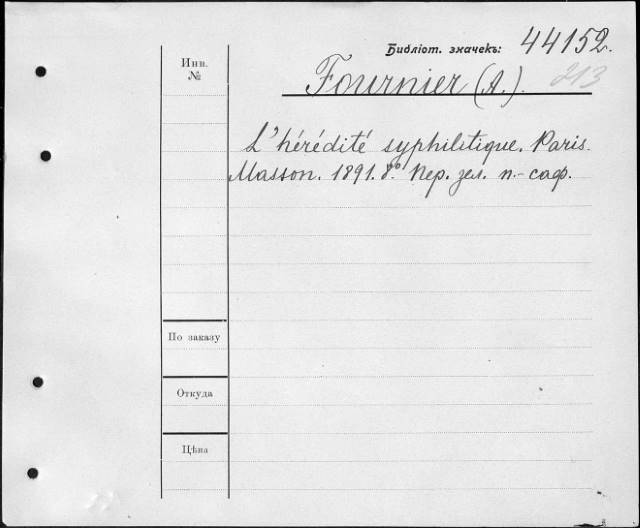 Библіот. значекъ: 44152.
Инв.
№
Fournier (A.). 213
L'hérédité syphilitique. Paris.
Masson. 1891. 8° Пер. зел. п.-саф.
По заказу
Откуда
Цѣна